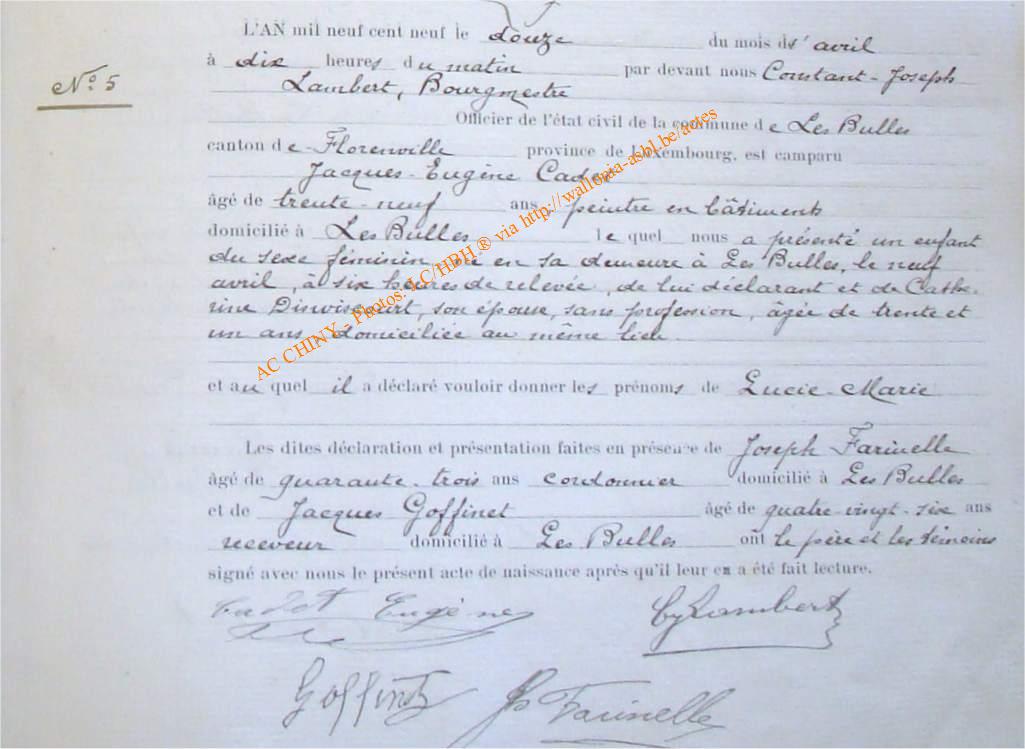 L'AN mil neuf cent neuf le douze du mois d'avril
N° 5
à dix heures du matin par devant nous Constant-Joseph
Lambert, Bourgmestre
Officier de l'état civil de la commune de Les Bulles
canton de Florenville province de Luxembourg, est comparu
Jacques-Eugène
âgé de trente-neuf ans, peintre en bâtiments
domicilié à Les Bulles lequel nous a présenté un enfant
du sexe féminin, né en sa demeure à Les Bulles, le neuf
avril, à six heures de relevée, de lui déclarant et de Cathe-
rine son épouse, sans profession, âgée de trente et
un ans, domiciliée au même lieu.
et auquel il a déclaré vouloir donner les prénoms de Lucie-Marie
Les dites déclaration et présentation faites en présence de Joseph Farinelle
âgé de quarante-trois ans cordonnier domicilié à Les Bulles
et de Jacques Goffinet âgé de quatre-vingt-six ans
receveur domicilié à Les Bulles ont le père et les témoins
signé avec nous le présent acte de naissance après qu'il leur en a été fait lecture.
Cadet Eugène
Lambert
Goffinet
Farinelle
AC CHINY - Photos: LC/HBH ® via http://wallonia-asbl.be/actes